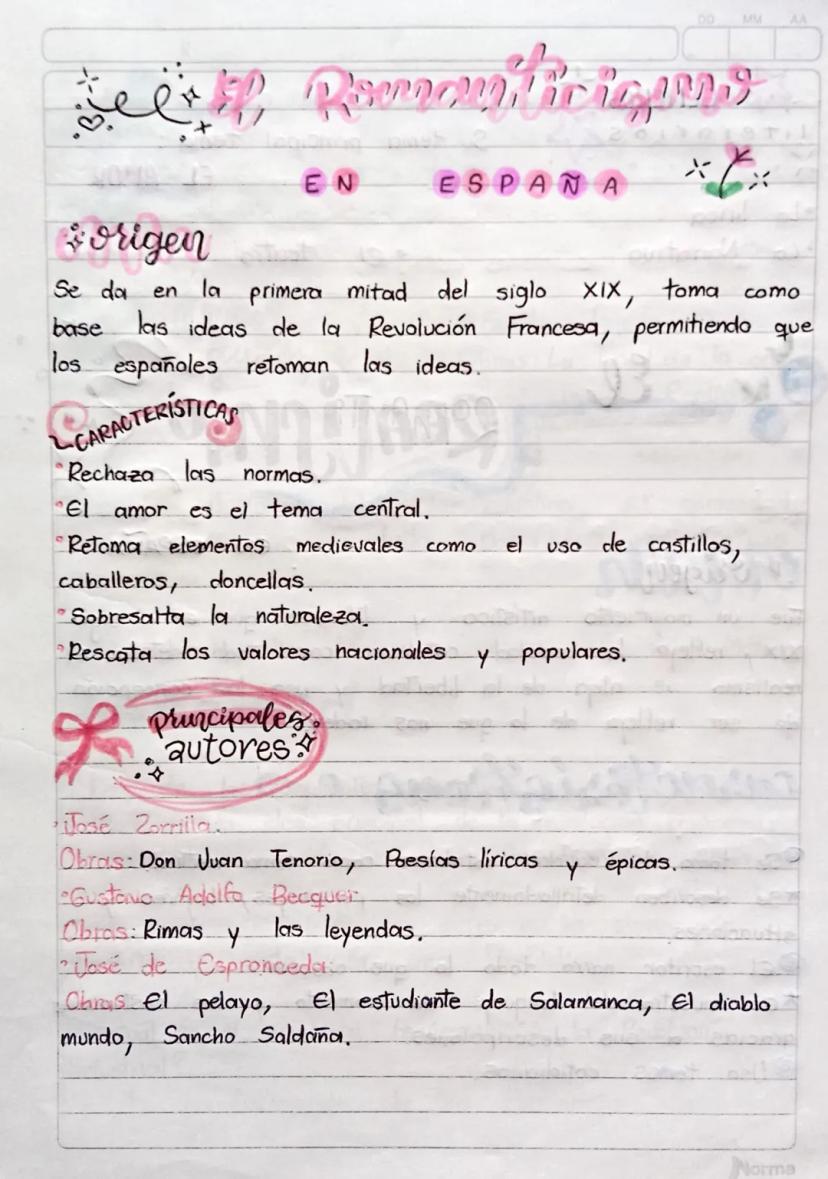 DD MM AA
El Romanticismo
EN ESPAÑA
origen
Se da en la primera mitad del siglo XIX, toma como
base las ideas de la Revolución Francesa, permitiendo que
los españoles retoman las ideas.
CARACTERÍSTICAS
°Rechaza las normas.
°El amor es el tema central.
°Retoma elementos medievales como el uso de castillos,
caballeros, doncellas.
°Sobresalta la naturaleza.
°Rescata los valores nacionales y populares.
principales
autores
°José Zorrilla.
Obras: Don Juan Tenorio, Poesías líricas y épicas.
°Gustavo Adolfo Becquer
Obras: Rimas y las leyendas.
°José de Espronceda:
Obras El pelayo, El estudiante de Salamanca, El diablo
mundo, Sancho Saldaña.
Norma